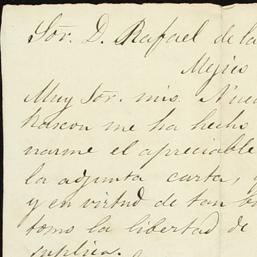 Sor. D. Rafael de la
Mejico
Muy Sor. mio. Nues
Rascon me ha hecho
narme el apreciable
la adjunta carta,
y en virtud de tan b
tomo la libertad de
suplica.